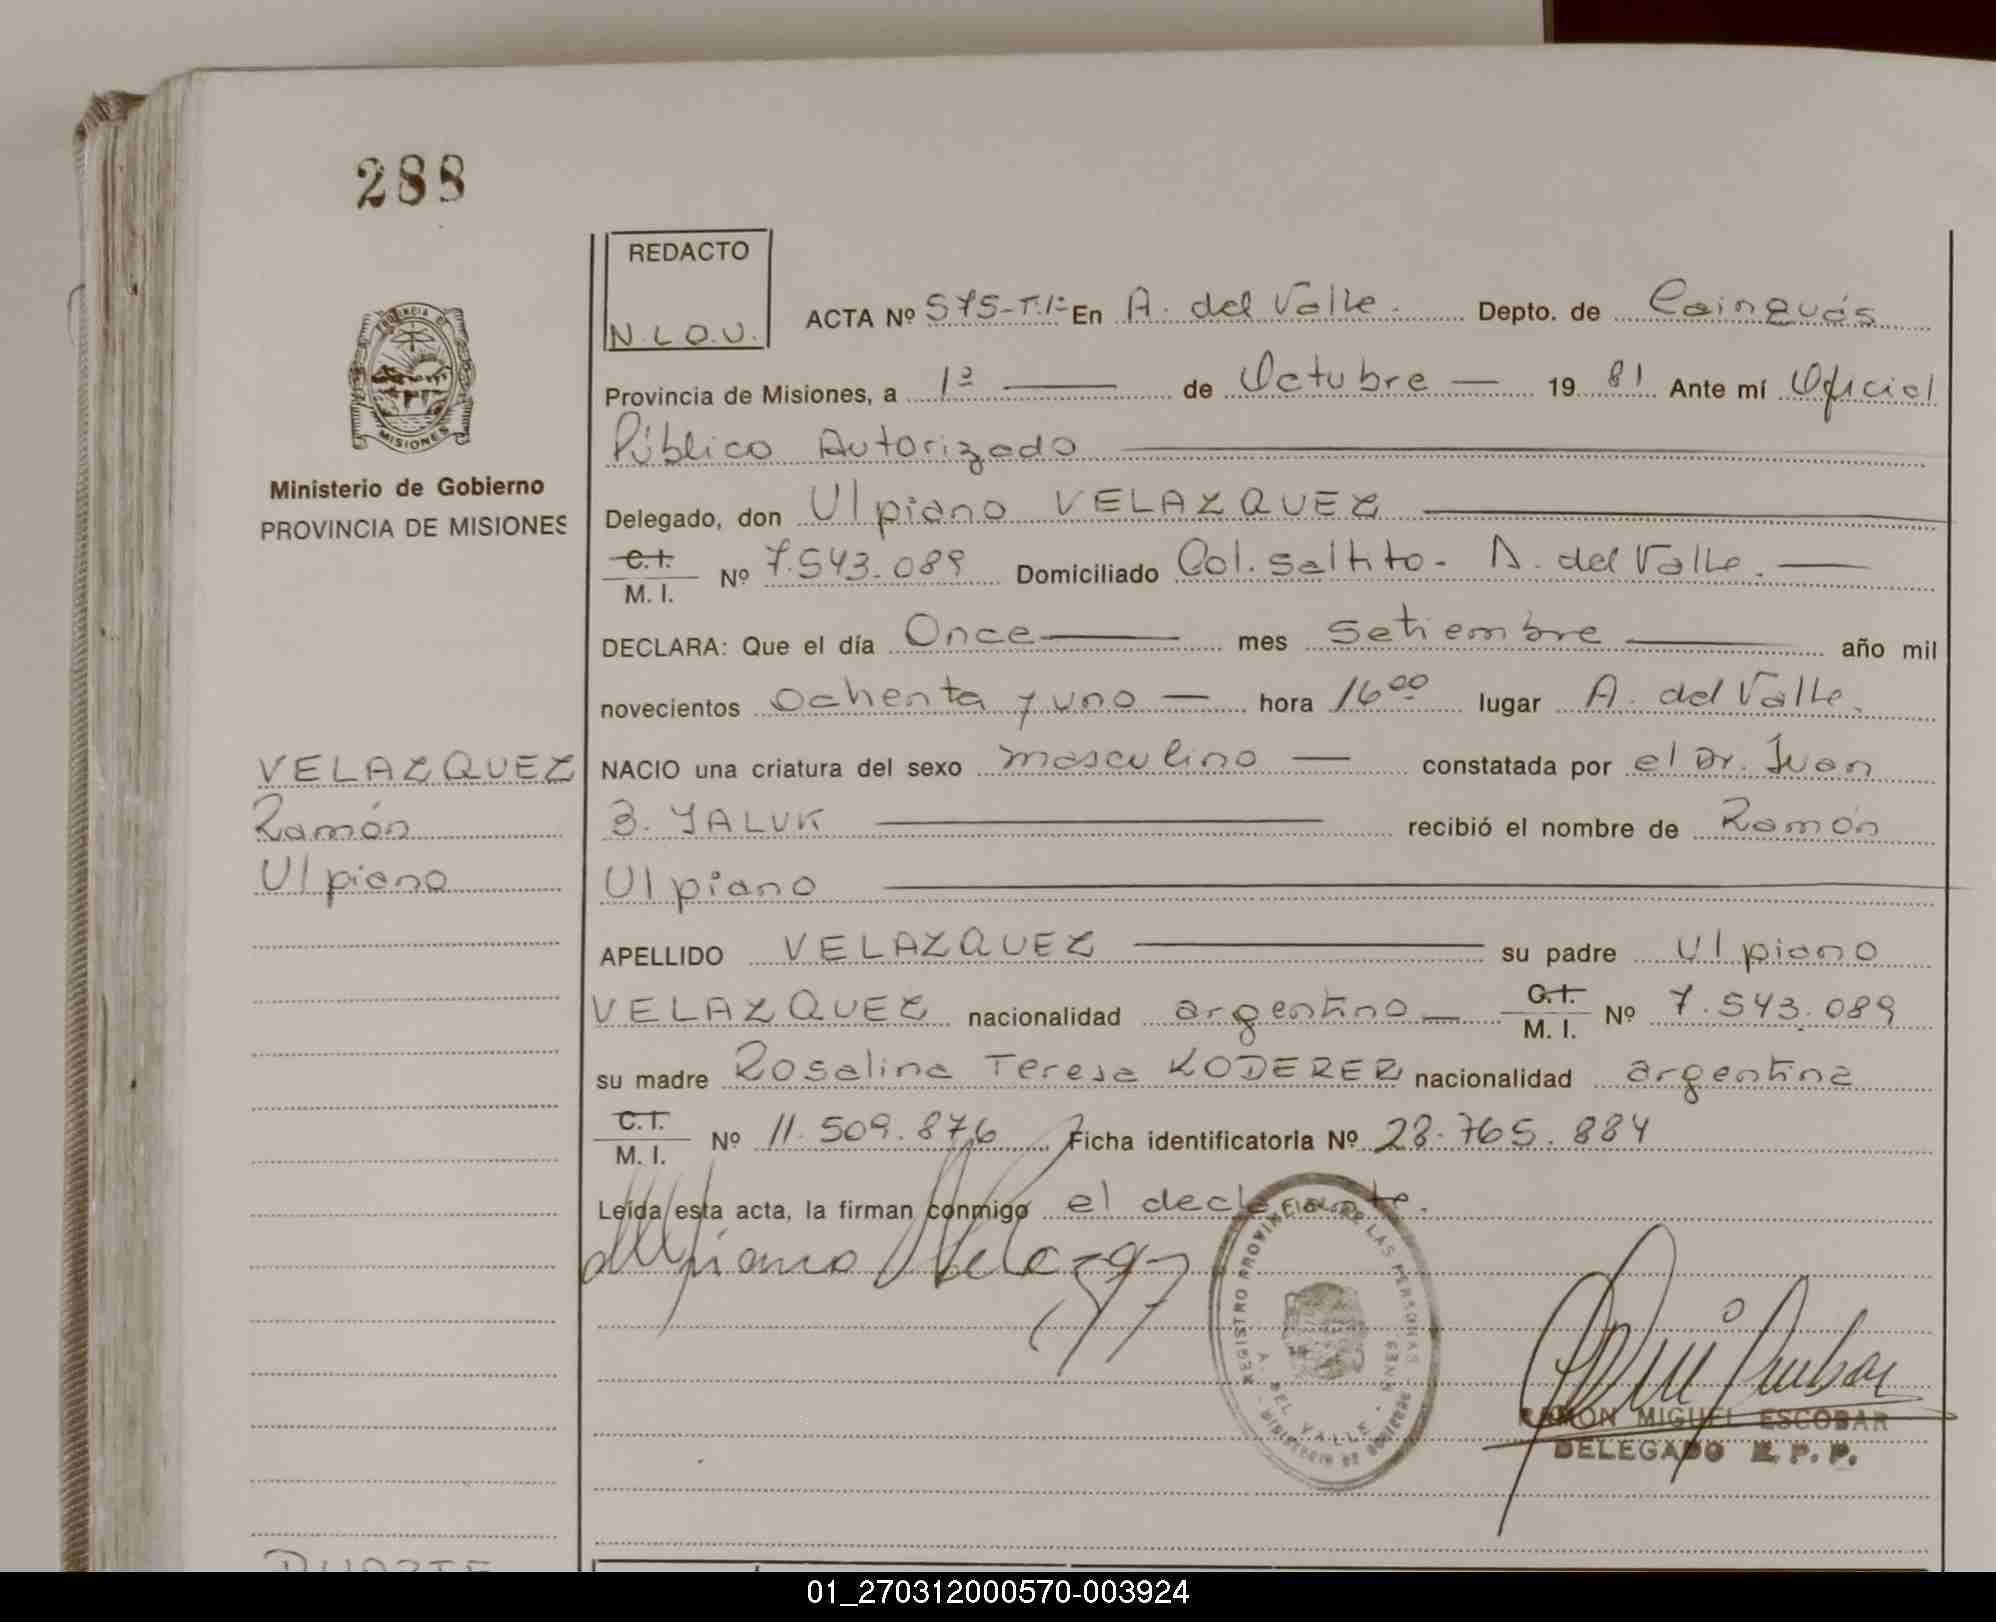 288
REDACTO
N.L.O.V.
ACTA Nº 575-T.1º En A. del Valle. Depto. de Cainguás
Provincia de Misiones, a 1º de Octubre 19 81 Ante mí Oficial
Público Autorizado
Delegado, don Ulpiano VELAZQUEZ
C.I.
M. I. Nº 7.543.089 Domiciliado Col. Saltito - A. del Valle.
DECLARA: Que el día Once mes Setiembre año mil
novecientos Ochenta y uno hora 16 00 lugar A. del Valle.
NACIO una criatura del sexo masculino constatada por el Dr. Juan
B. YALUK recibió el nombre de Ramón
Ulpiano
APELLIDO VELAZQUEZ su padre Ulpiano
VELAZQUEZ nacionalidad argentino C.I. M. I. Nº 7.543.089
su madre Rosalina Teresa KODERER nacionalidad argentina
C.I.
M. I. Nº 11.509.876 Ficha identificatoria Nº 28.765.884
Leída esta acta, la firman conmigo el declarante.
Ulpiano Velazquez
PROVINCIA DE
MISIONES
Ministerio de Gobierno
PROVINCIA DE MISIONES
VELAZQUEZ
Ramón
Ulpiano
REGISTRO PROVINCIAL DE LAS PERSONAS
A. DEL VALLE - MNES
MINISTERIO DE GOBIERNO
RAMON MIGUEL ESCOBAR
DELEGADO R. P. P.
DUARTE
01_270312000570-003924